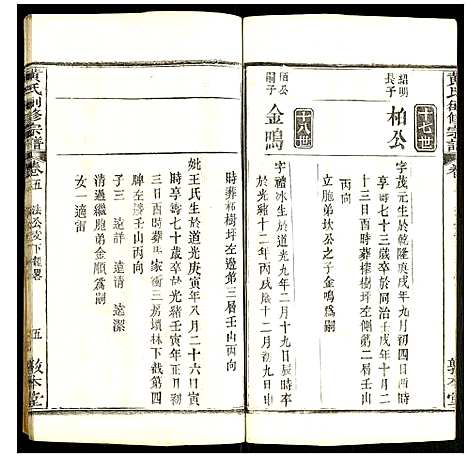 黃氏創修宗譜
十七世
紹明長子
柏公
字茂元生於乾隆庚戌年九月初四日酉時
享壽七十三歲卒於同治壬戌年十二月二
十三日酉時葬樹坪左側第二層壬山
丙向
立胞弟坎公之子金鳴爲嗣
十八世
柏公嗣子
金鳴
字禮冰生於道光九年二月十九日辰時卒
於光緒十二年丙戌歲十二月初
時葬樹坪左邊第三層壬山丙向
妣王氏生於道光庚寅年八月二十六日寅
時享壽七十歲卒於光緒壬寅年正月初
四日酉時葬家衝三房墳林下截第四
牌左邊壬山丙向
子三 遠詳 遠清 遠潔
清過繼胞弟金順爲嗣
女一適雷
黃氏創修宗譜
卷五
法公位下
五
敦本堂
敦本堂